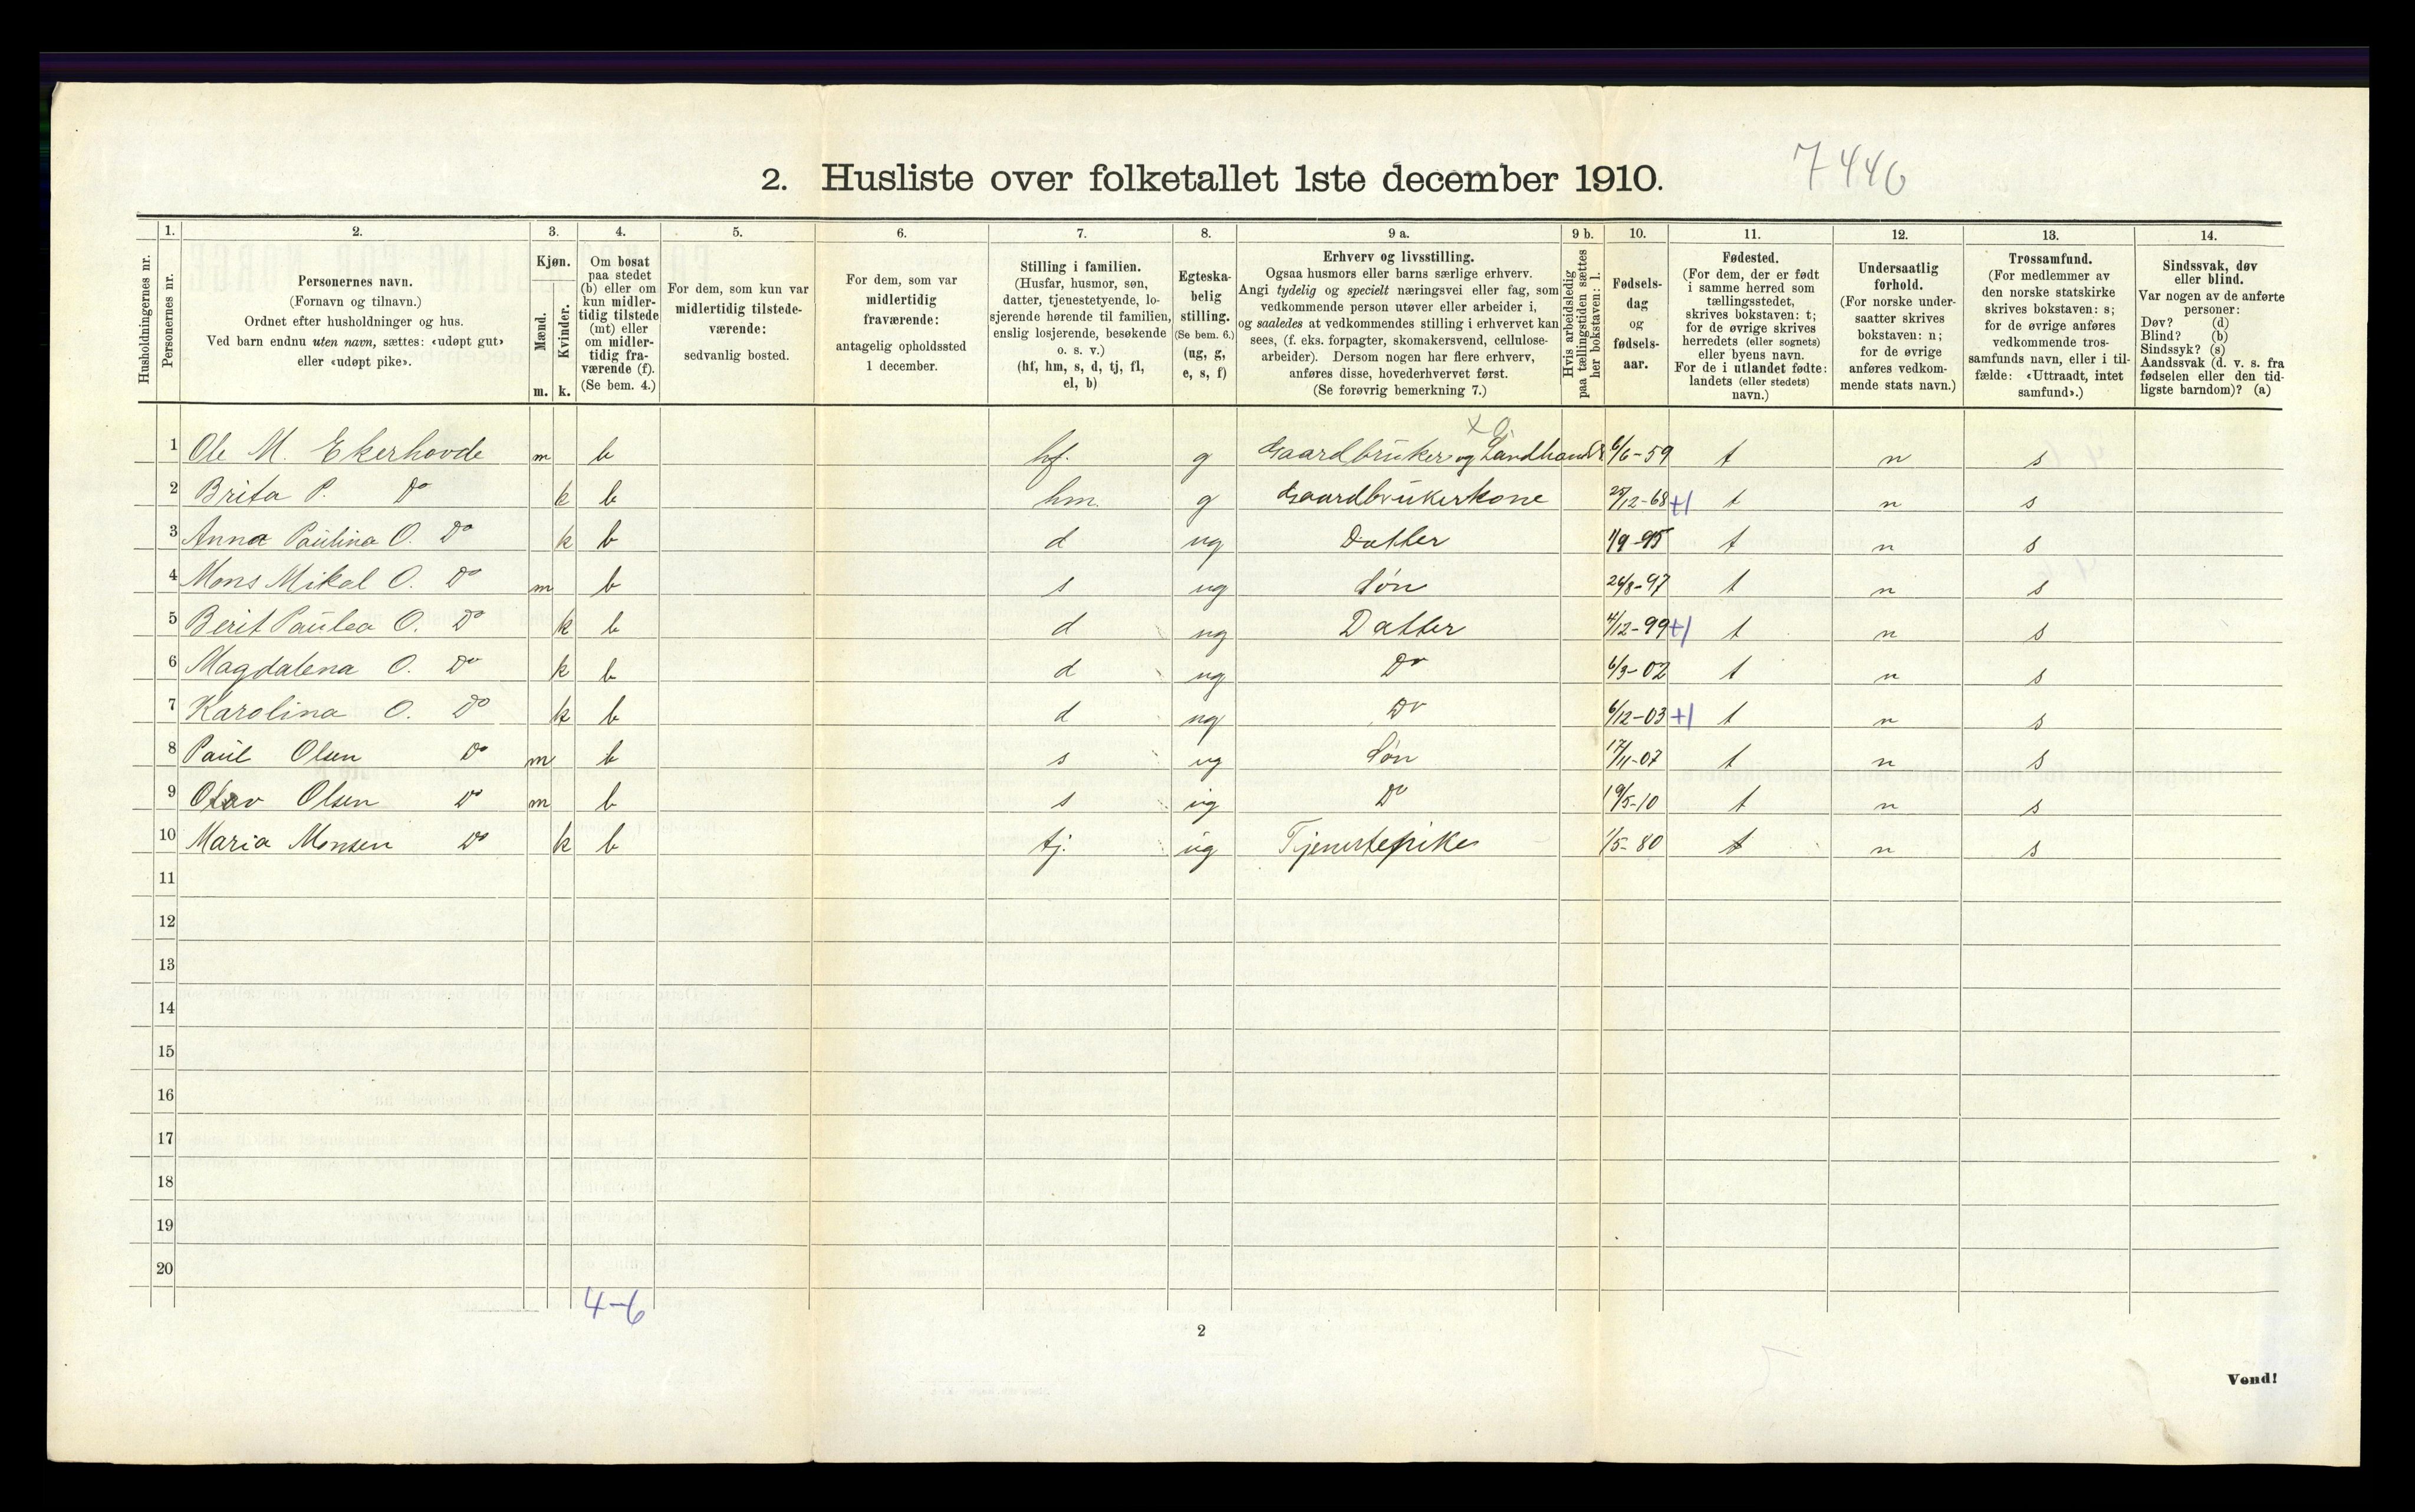 2. Husliste over folketallet 1ste december 1910.
7446
Husholdningernes nr.
1.
Personernes nr.
2.
Personernes navn.
(Fornavn og tilnavn.)
Ordnet efter husholdninger og hus.
Ved barn endnu uten navn, sættes: «udøpt gut»
eller «udøpt pike».
3.
Kjøn.
Mænd.
Kvinder.
m. k.
4.
Om bosat
paa stedet
(b) eller om
kun midler-
tidig tilstede
(mt) eller
om midler-
tidig fra-
værende (f).
(Se bem. 4.)
5.
For dem, som kun var
midlertidig tilstede-
værende:
sedvanlig bosted.
6.
For dem, som var
midlertidig
fraværende:
antagelig opholdssted
1 december.
7.
Stilling i familien.
(Husfar, husmor, søn,
datter, tjenestetyende, lo-
sjerende hørende til familien,
enslig losjerende, besøkende
o. s. v.)
(hf, hm, s, d, tj, fl,
el, b)
8.
Egteska-
belig
stilling.
(Se bem. 6.)
(ug, g,
e, s, f)
9 a.
Erhverv og livsstilling.
Ogsaa husmors eller barns særlige erhverv.
Angi tydelig og specielt næringsvei eller fag, som
vedkommende person utøver eller arbeider i,
og saaledes at vedkommendes stilling i erhvervet kan
sees, (f. eks. forpagter, skomakersvend, cellulose-
arbeider). Dersom nogen har flere erhverv,
anføres disse, hovederhvervet først.
(Se forøvrig bemerkning 7.)
9 b.
Hvis arbeidsledig
paa tællingstiden sættes
her bokstaven: l.
10.
Fødsels-
dag
og
fødsels-
aar.
11.
Fødested.
(For dem, der er født
i samme herred som
tællingsstedet,
skrives bokstaven: t;
for de øvrige skrives
herredets (eller sognets)
eller byens navn.
For de i utlandet fødte:
landets (eller stedets)
navn.)
12.
Undersaatlig
forhold.
(For norske under-
saatter skrives
bokstaven: n;
for de øvrige
anføres vedkom-
mende stats navn.)
13.
Trossamfund.
(For medlemmer av
den norske statskirke
skrives bokstaven: s;
for de øvrige anføres
vedkommende tros-
samfunds navn, eller i til-
fælde: «Uttraadt, intet
samfund».)
14.
Sindssvak, døv
eller blind.
Var nogen av de anførte
personer:
Døv? (d)
Blind? (b)
Sindssyk? (s)
Aandssvak (d. v. s. fra
fødselen eller den tid-
ligste barndom)? (a)
1 Ole M. Ekerhovde m b hf. g Gaardbruker og Landhandl 6/6-59 t n s
2 Brita P. Do k b hm. g Gaardbrukerkone 25/12-68 +1 t n s
3 Anna Paulina O. Do k b d ug Datter 1/9-95 t n s
4 Mons Mikal O. Do m b s ug Søn 26/8-97 t n s
5 Berit Paulea O. Do k b d ug Datter 4/12-99 +1 t n s
6 Magdalena O. Do k b d ug Do 6/3-02 t n s
7 Karolina O. Do k b d ug Do 6/12-03 +1 t n s
8 Paul Olsen Do m b s ug Søn 17/11-07 t n s
9 Olav Olsen Do m b s ug Do 19/5-10 t n s
10 Maria Monsen Do k b tj. ug Tjenestepike 1/5-80 t n s
11
12
13
14
15
16
17
18
19
20
4-6
2
Vend!